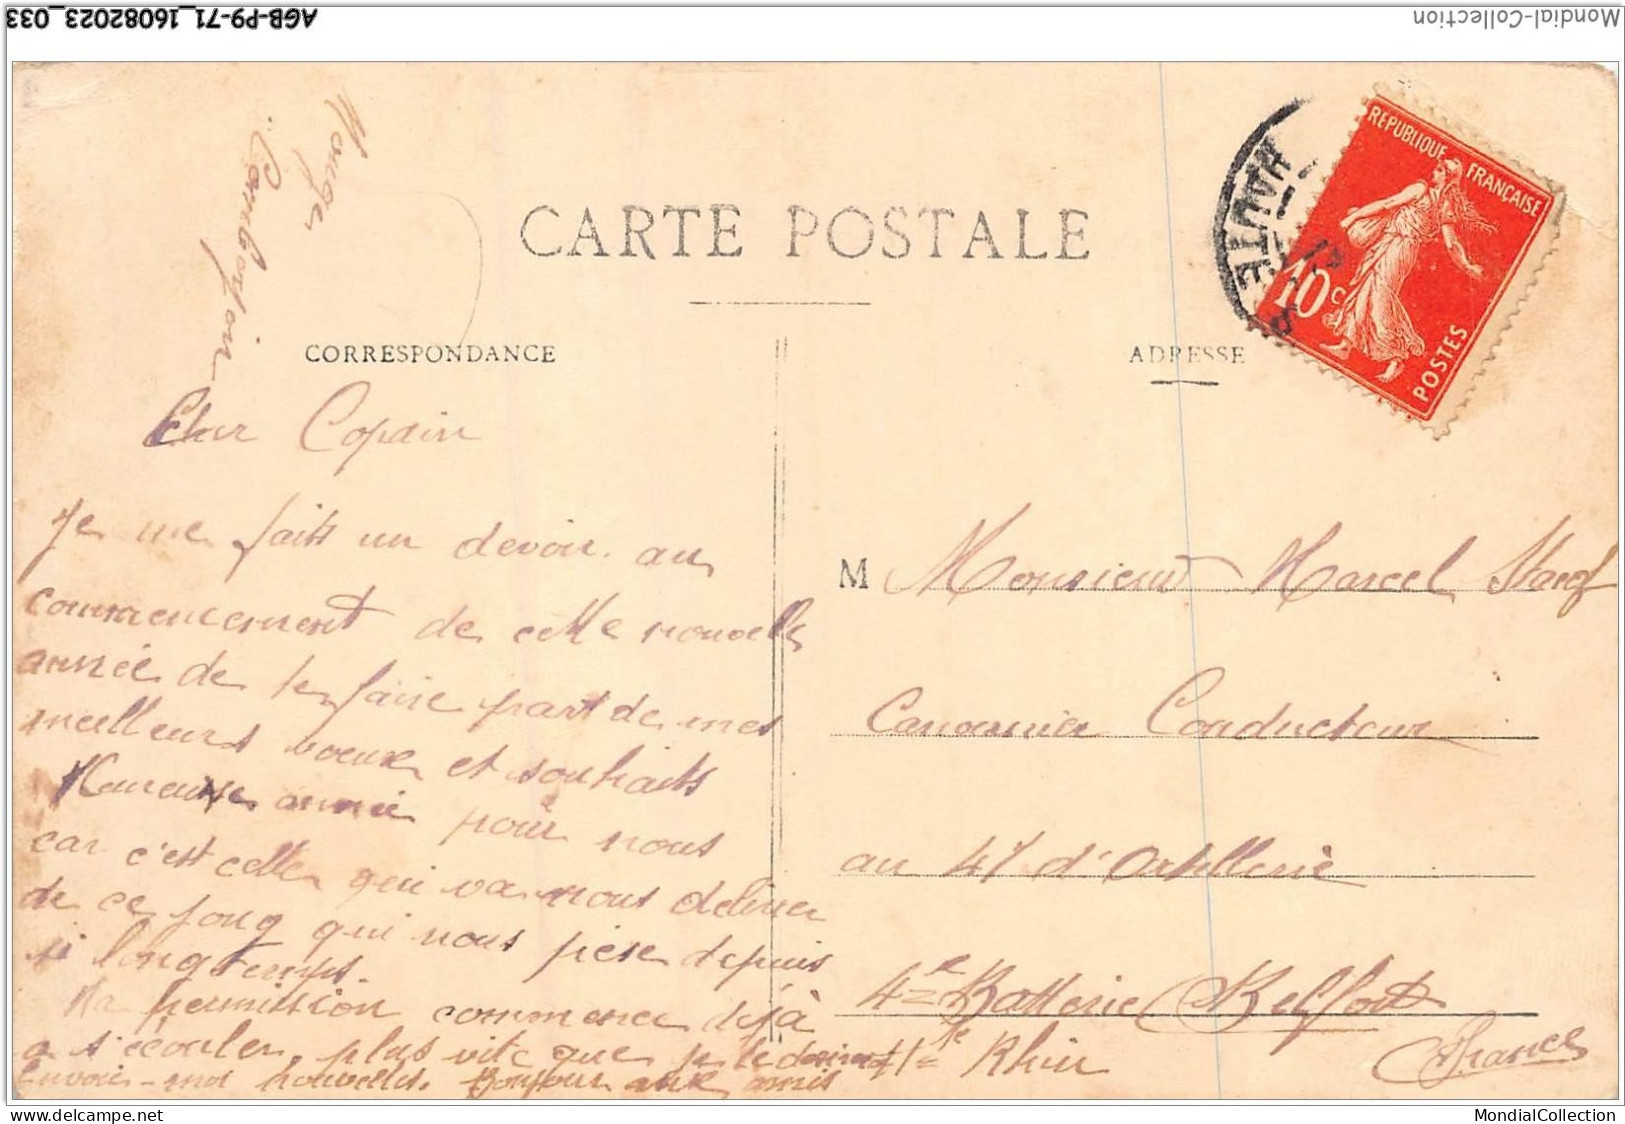 AGB-P9-71_16082023_033
Mondial-Collection
CARTE POSTALE
CORRESPONDANCE
ADRESSE
REPUBLIQUE FRANÇAISE
10c
POSTES
HAUTE
Cher Copain
Je me faits un devoir au
commencement de cette nouvelle
année de te faire part de mes
meilleurs voeux et souhaits
Heureuse année pour nous
car c'est celle qui va nous delivrer
de ce joug qui nous pèse depuis
si longtemps.
Ma permission commence déjà
a s'écouler, plus vite que je le
Envoie-moi nouvelles. Bonjour aux amis
M Monsieur Marcel
Canonnier Conducteur
au 47 d'Artillerie
4e Batterie Belfort
Rhin
France
MondialCollection